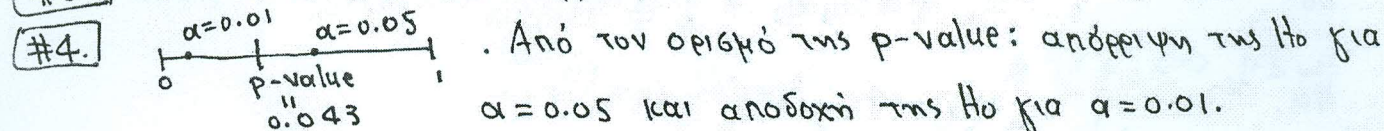 #4.
α=0.01 α=0.05
0 p-value 1
"
0.043
. Από τον ορισμό της p-value: απόρριψη της Ho για
α=0.05 και αποδοχή της Ho για α=0.01.